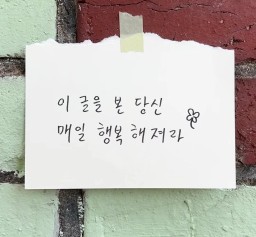 이 글을 본 당신
매일 행복해져라